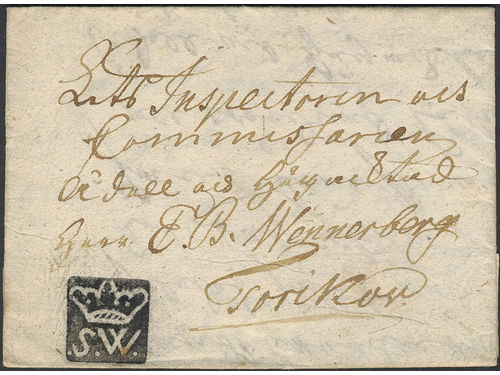 Inspectoren och
Commissarien
Ädell och
Herr E. B. Wennerberg
Torikov
S.W.